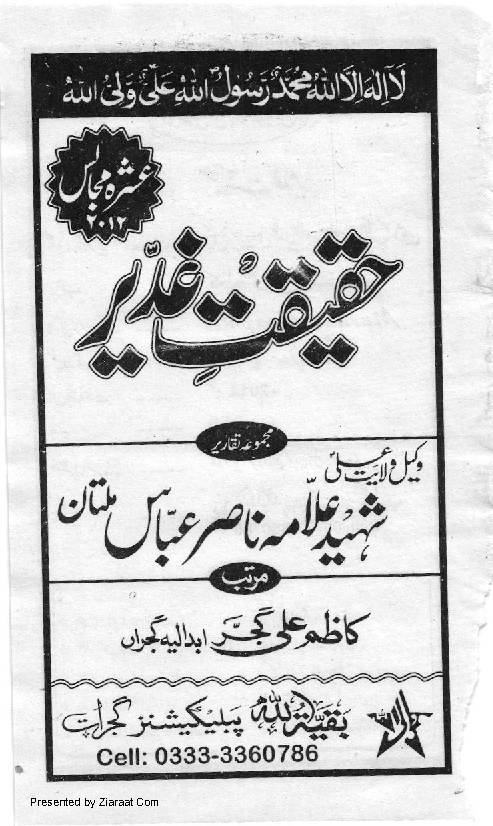 لَا اِلٰهَ اِلَّا اللهُ مُحَمَّدٌ رَّسُوْلُ اللهِ عَلِىٌّ وَلِىُّ اللهِ
عشرہ مجالس
۲۰۱۲
حقیقتِ غدیر
مجموعہ تقاریر
وکیل ولایت علیؑ
شہید علامہ ناصر عباس ملتان
مرتب
کاظم علی گجر ابدالیہ گجراں
بقیۃ اللہ پبلیکیشنز گجرات
Cell: 0333-3360786
Presented by Ziaraat.Com